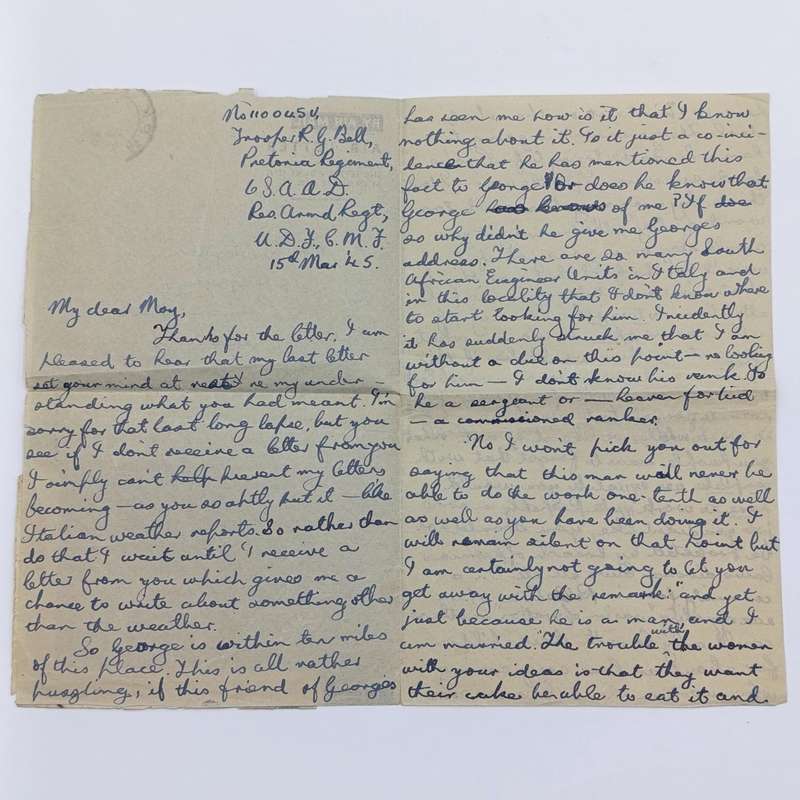 No 1100454,
Trooper R. G. Bell,
Pretoria Regiment,
6 S. A. A. D.
Res. Armd Regt,
U. D. F., C. M. F.
15th Mar '45.
My dear May,
Thanks for the letter. I am
pleased to hear that my last letter
set your mind at rest re my under-
standing what you had meant. I'm
sorry for that last long lapse, but you
see if I don't receive a letter from you
I simply can't help prevent my letters
becoming — as you so aptly put it — like
Italian weather reports. So rather than
do that I wait until I receive a
letter from you which gives me a
chance to write about something other
than the weather.
So George is within ten miles
of this place. This is all rather
puzzling, if this friend of Georges
has seen me how is it that I know
nothing about it. Is it just a co-inci-
dence that he has mentioned this
fact to George? Or does he know that
George has knows of me? If does
so why didn't he give me Georges
address. There are so many South
African Engineer Units in Italy and
in this locality that I don't know where
to start looking for him. Incidently
it has suddenly struck me that I am
without a clue on this point — re looking
for him — I don't know his rank. Is
he a sergeant or — heaven forbid
— a commissioned ranker.
No I won't pick you out for
saying that this man will never be
able to do the work one-tenth as well
as well as you have been doing it. I
will remain silent on that point but
I am certainly not going to let you
get away with the remark: "and yet
just because he is a man, and I
am married." The trouble with the women
with your ideas is that they want
their cake be able to eat it and